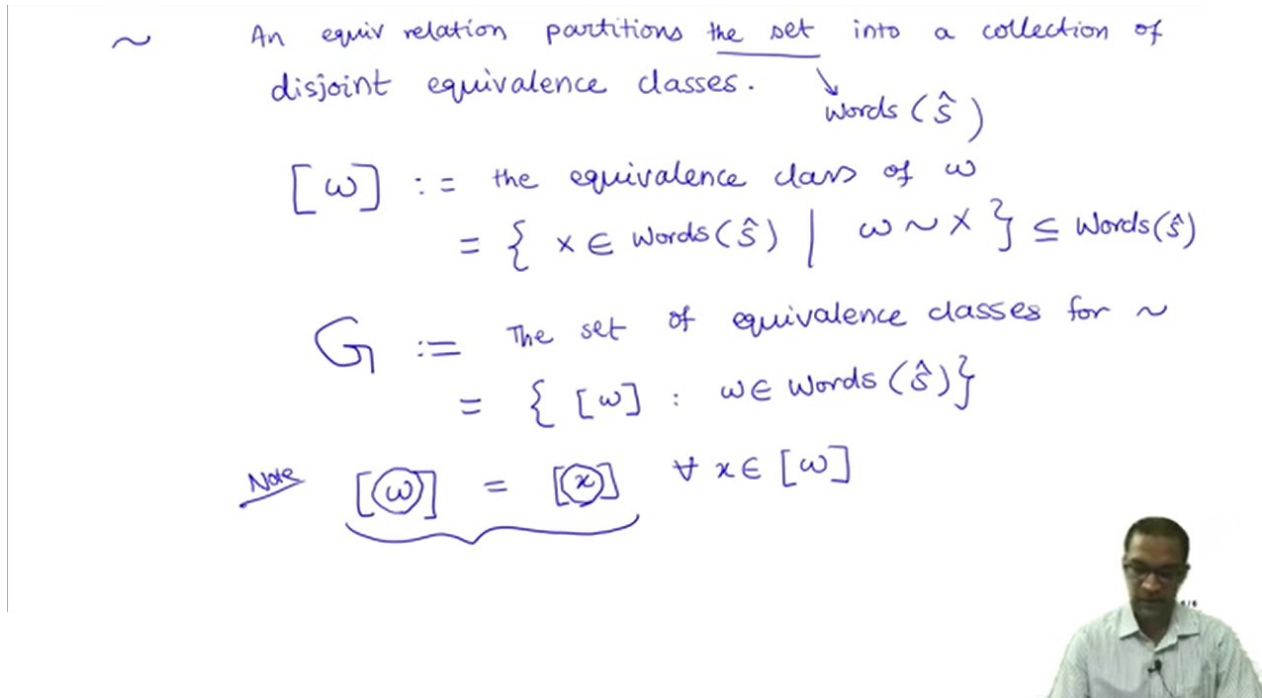 ~ An equiv relation partitions the set into a collection of
disjoint equivalence classes.
Words (ŝ)
[ω] := the equivalence class of ω
= { x ∈ Words(ŝ) | ω ~ x } ⊆ Words(ŝ)
G := The set of equivalence classes for ~
= { [ω] : ω ∈ Words (ŝ) }
Note [ω] = [x] ∀ x ∈ [ω]